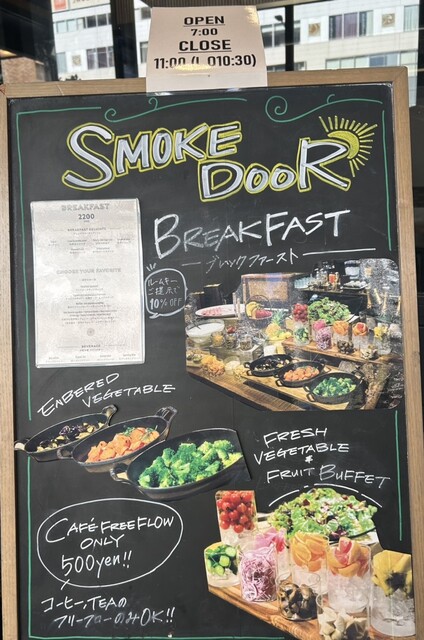 OPEN
7:00
CLOSE
11:00 (L.O10:30)
SMOKE
DOOR
BREAKFAST
2200
BREAKFAST
ブレックファースト
ルームキー
ご提示で
10% OFF
CHOOSE YOUR FAVORITE
BEVERAGE
ENBERED
VEGETABLE
FRESH
VEGETABLE
*
FRUIT BUFFET
CAFÉ FREE FLOW
ONLY
500yen!!
コーヒー,TEAの
フリーフローのみOK!!